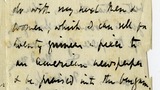 do with my next then a
women, which I can sell for
twenty guineas a piece to
an American newspaper
& be praised into the bargain,